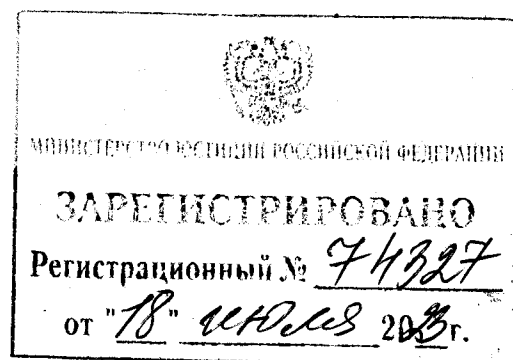 МИНИСТЕРСТВО ЮСТИЦИИ РОССИЙСКОЙ ФЕДЕРАЦИИ
ЗАРЕГИСТРИРОВАНО
Регистрационный № 74327
от "18" июля 2023г.